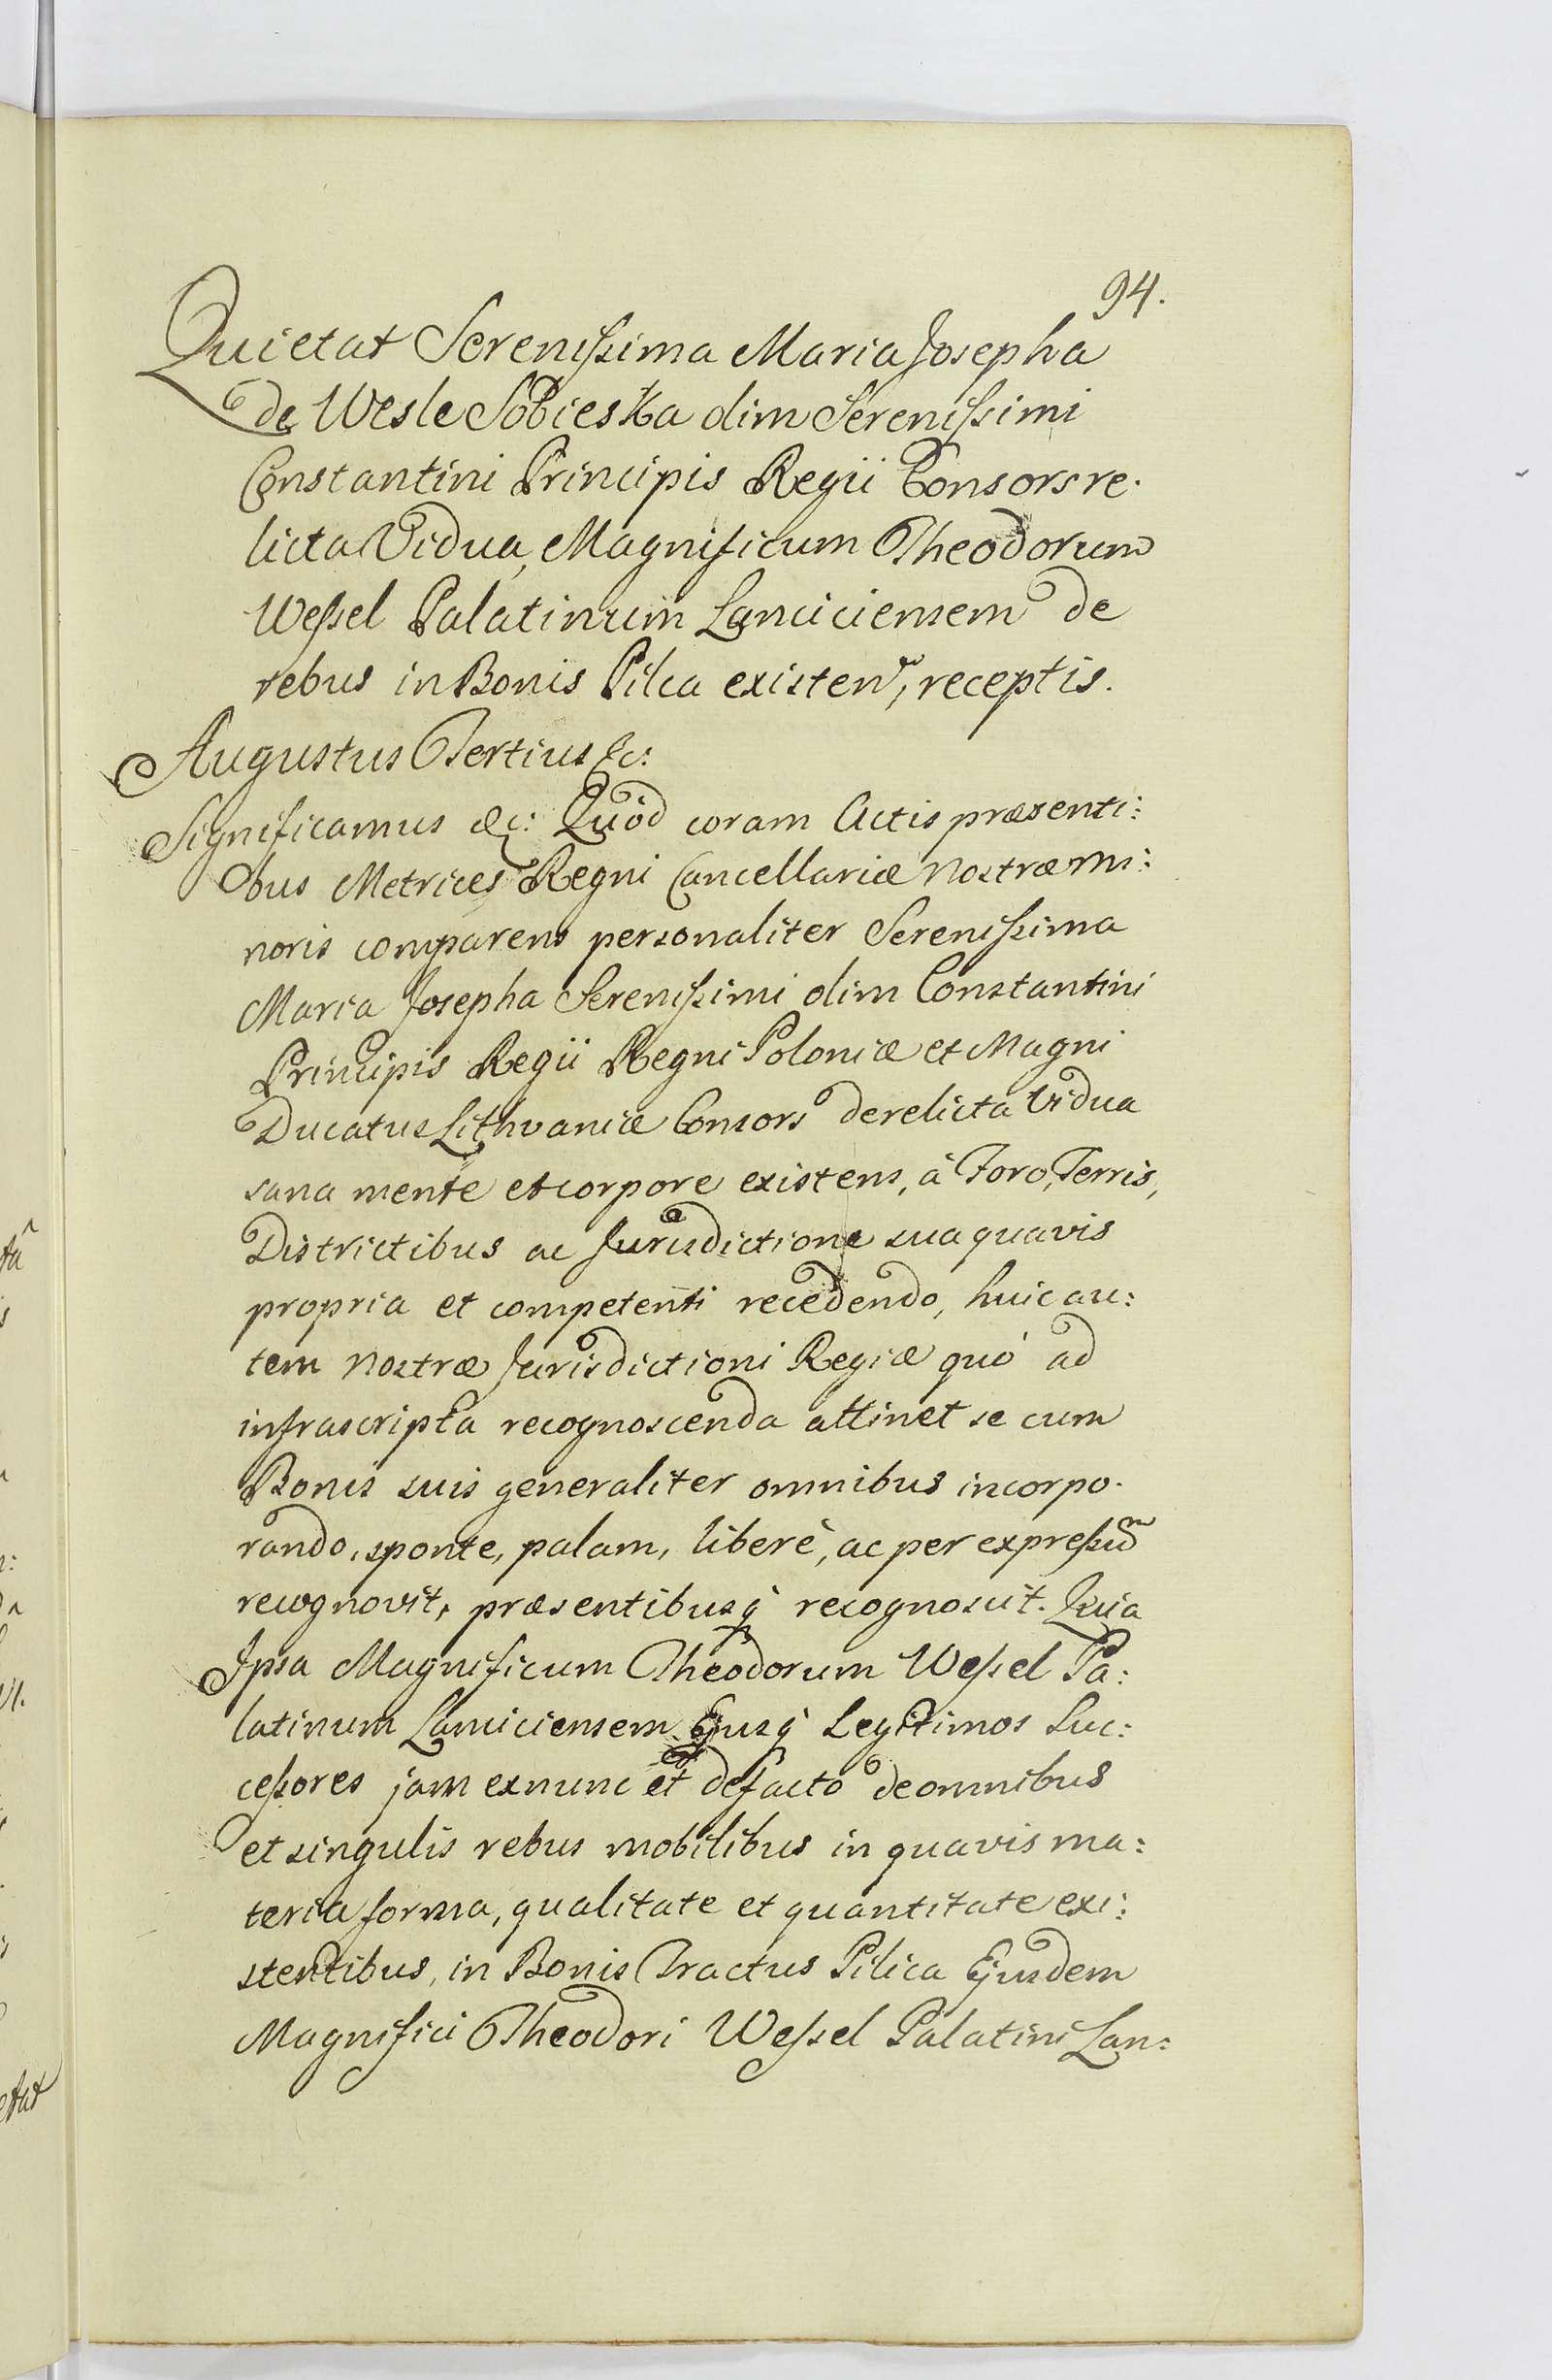 94.
Quietat Serenissima Maria Josepha
de Wesle Sobieska olim Serenissimi
Constantini Principis Regii Consors re-
licta Vidua, Magnificum Theodorum
Wessel Palatinum Lanciciensem de
rebus in Bonis Pilca existen, receptis.
Augustus Tertius &c:
Significamus &c: Quòd coram Actis præsenti:
bus Metrices Regni Cancellariæ Nostræ mi:
noris comparens personaliter Serenissima
Maria Josepha Serenissimi olim Constantini
Principis Regii Regni Poloniæ et Magni
Ducatus Lithvaniæ Consors derelicta Vidua
sana mente et corpore existens, à Foro, Terris,
Districtibus ac Jurisdictione sua quavis
propria et competenti recedendo, huic au:
tem Nostræ Jurisdictioni Regiæ quò ad
infrascripta recognoscenda attinet se cum
Bonis suis generaliter omnibus incorpo-
rando, sponte, palam, liberè, ac per expressũ
recognovit, præsentibusq́ recognoscit. Quia
Ipsa Magnificum Theodorum Wessel Pa:
latinum Lanciciensem Ejusq́ Legitimos Suc:
cessores jam exnunc et defacto de omnibus
et singulis rebus mobilibus in quavis ma:
teria forma, qualitate et quantitate exi:
stentibus, in Bonis Tractus Pilica Ejusdem
Magnifici Theodori Wessel Palatini Lan: